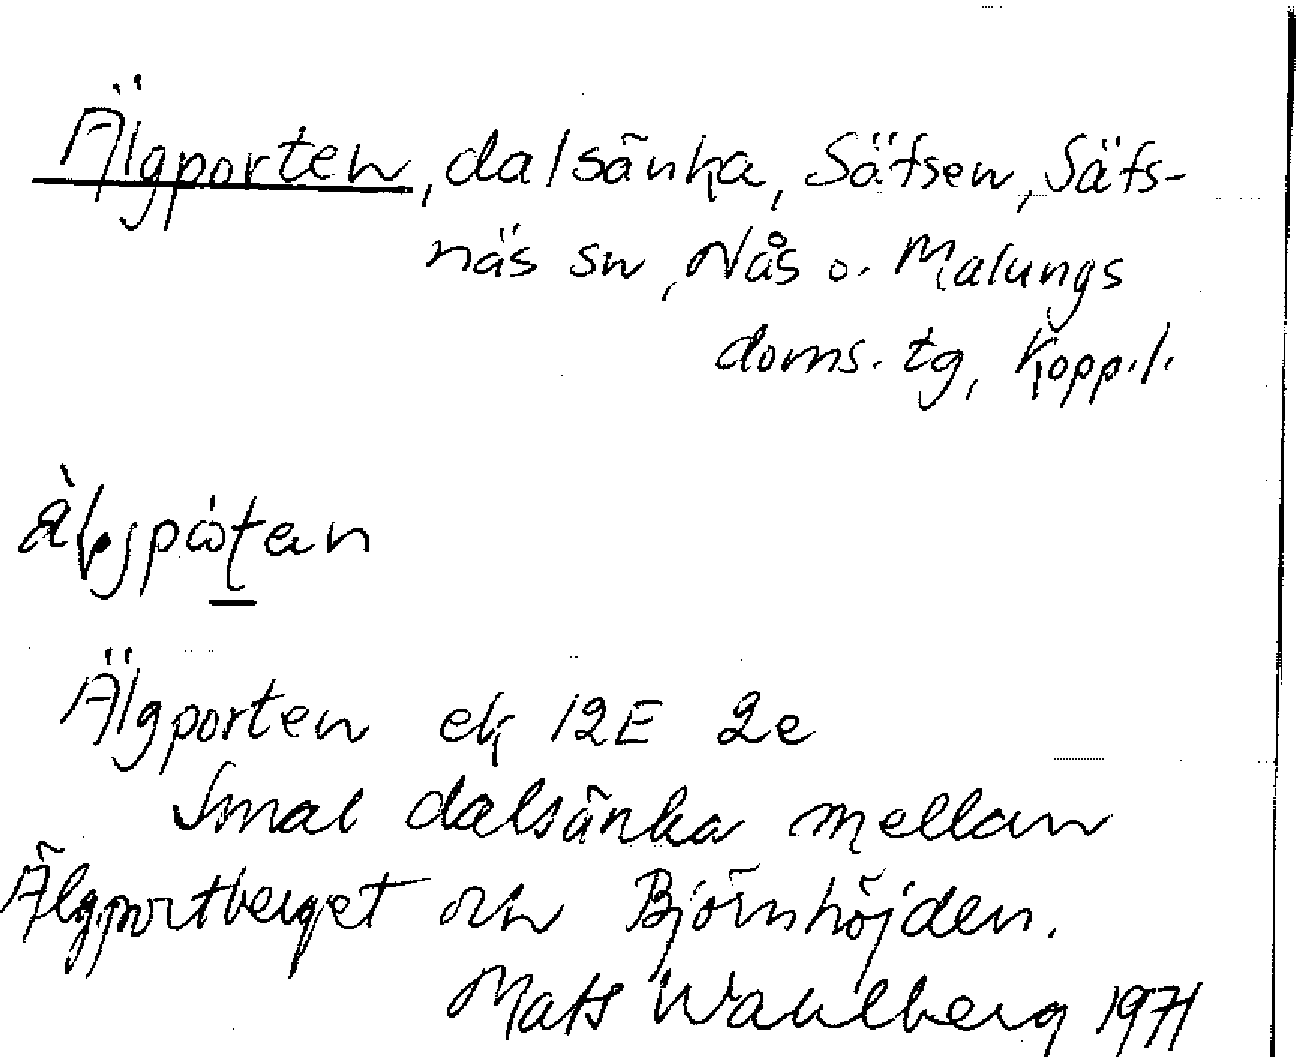 Älgporten, dalsänka, Säfsen, Säfs-
näs sn, Nås o. Malungs
doms. tg, Kopp.l.
Älgporten ek 12E 2e
Smal dalsänka mellan
Älgportberget och Björnhöjden.
Mats Wahlberg 1971